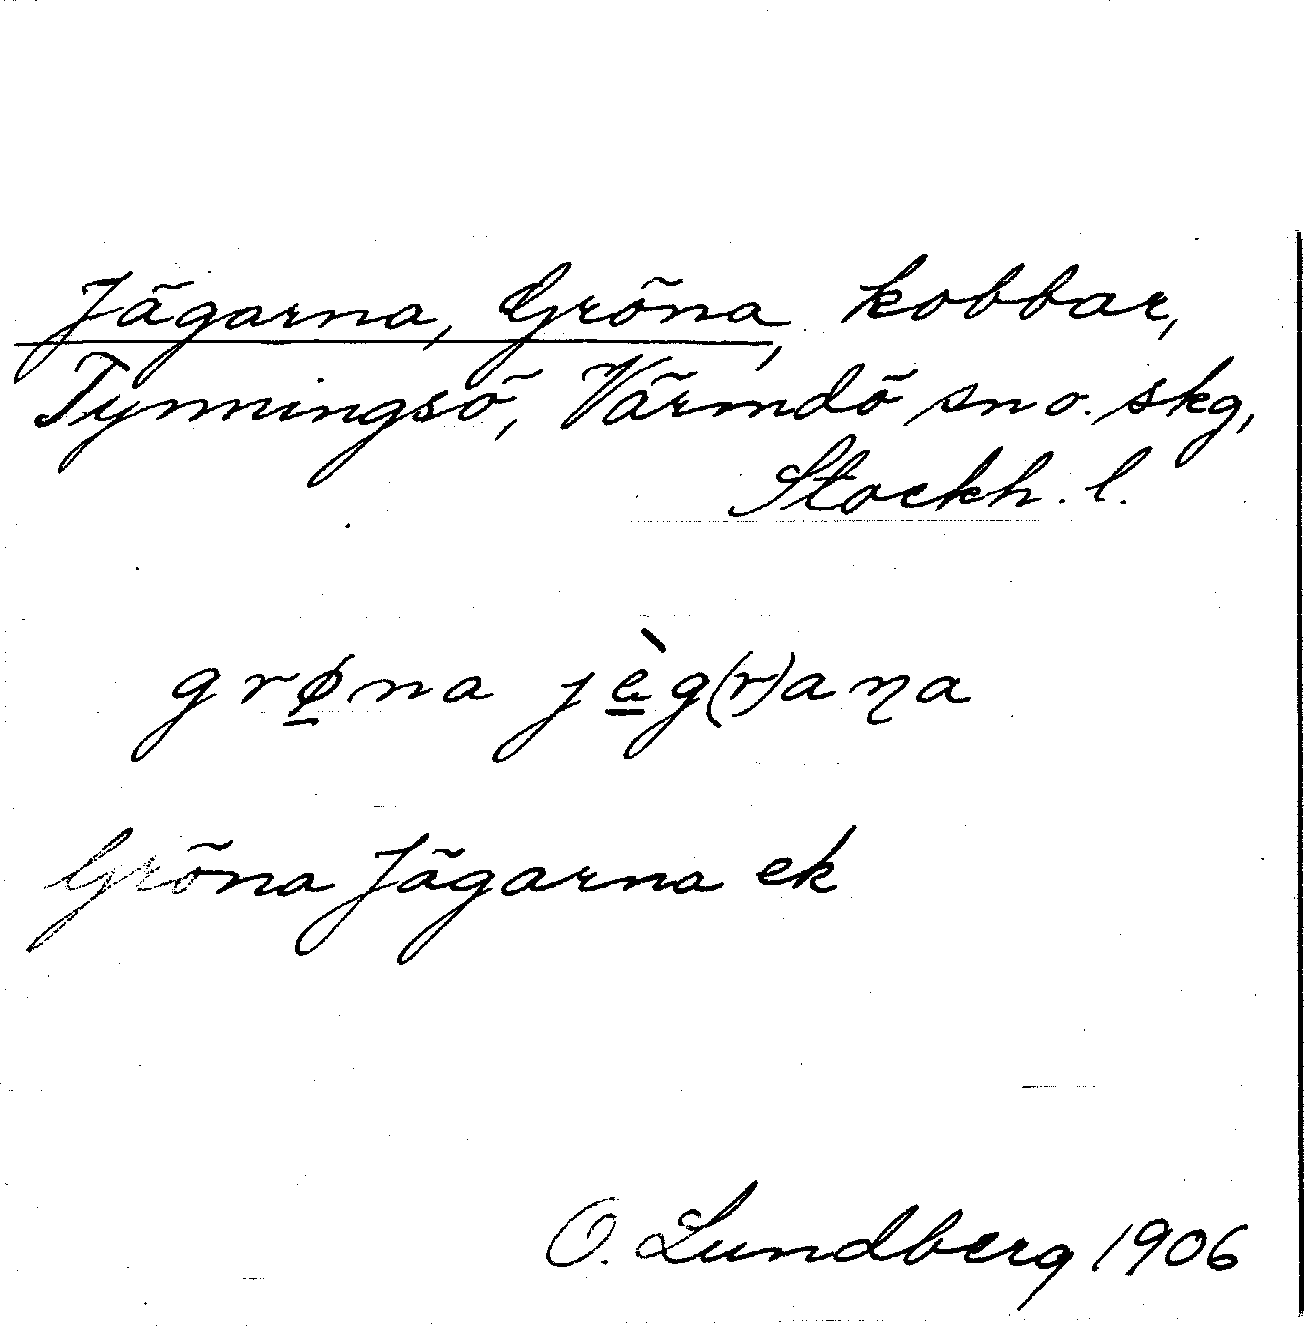 Jägarna, Gröna, kobbar,
Tynningsö, Värmdö sn o. skg,
Stockh. l.
grø̲na jè̲g(r)aɳa
Gröna Jägarna ek
O. Lundberg 1906